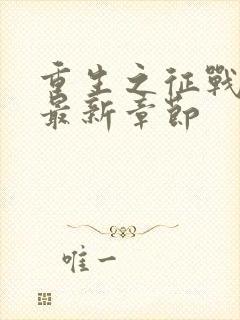 重生之征戰
最新章節
唯一